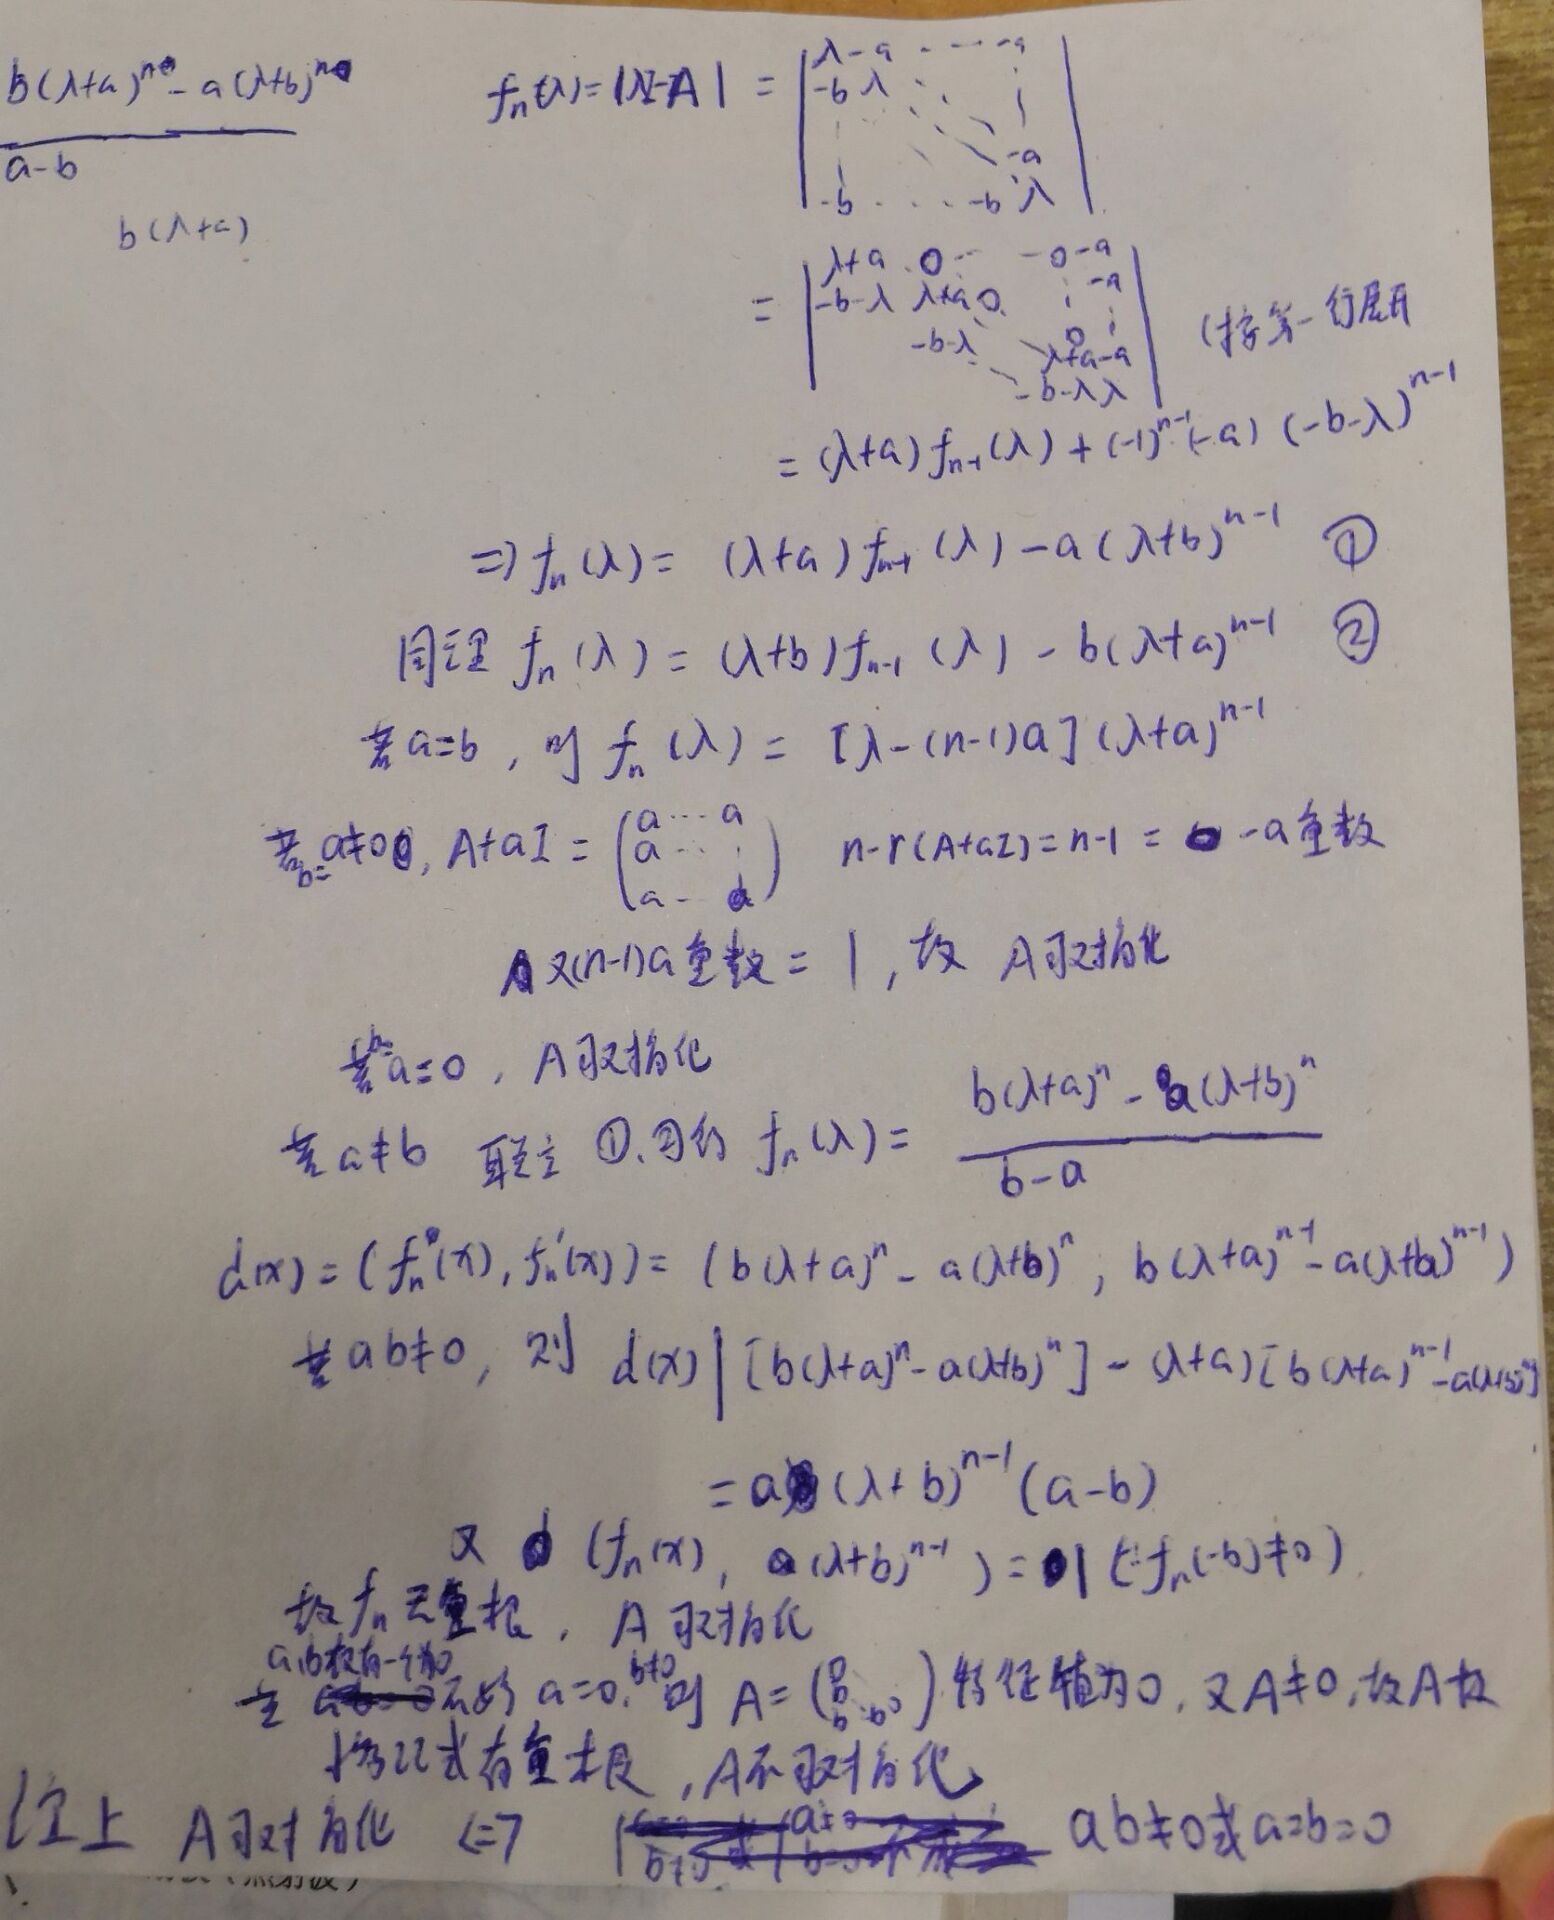 b(λ+a)^n - a(λ+b)^n
a-b
b(λ+a)
f_n(λ)=|λI-A| = | λ -a ⋯ -a
-b λ
-a
-b ⋯ -b λ |
= | λ+a 0 ⋯ 0 -a
-b-λ λ+a 0 -a
-b-λ 0
λ+a -a
-b-λ λ | (按第一行展开
= (λ+a)f_{n-1}(λ)+(-1)^{n-1}(-a)(-b-λ)^{n-1}
⇒ f_n(λ)= (λ+a)f_{n-1}(λ)-a(λ+b)^{n-1} ①
同理 f_n(λ)=(λ+b)f_{n-1}(λ)-b(λ+a)^{n-1} ②
若a=b, 则 f_n(λ)= [λ-(n-1)a](λ+a)^{n-1}
若b=a≠0, A+aI= (a⋯a
a⋯
a⋯a) n-r(A+aI)=n-1= -a重数
又(n-1)a重数=1, 故 A可对角化
若b=a=0, A可对角化
若a≠b 联立①.②得 f_n(λ)= b(λ+a)^n - a(λ+b)^n
b-a
d(x)=(f_n(x), f_n'(x))= (b(λ+a)^n-a(λ+b)^n, b(λ+a)^{n-1}-a(λ+b)^{n-1})
若ab≠0, 则 d(x)|[b(λ+a)^n-a(λ+b)^n]-(λ+a)[b(λ+a)^{n-1}-a(λ+b)^{n-1}]
= a(λ+b)^{n-1}(a-b)
又 (f_n(x), a(λ+b)^{n-1})=1 (∵f_n(-b)≠0)
故f_n无重根, A可对角化
a,b仅有一个为0
若 不妨 a=0, b≠0 则 A=(0
b⋯b0) 特征值为0, 又A≠0, 故A故
有重根, A不可对角化
综上 A可对角化 ⇔ ab≠0或a=b=0